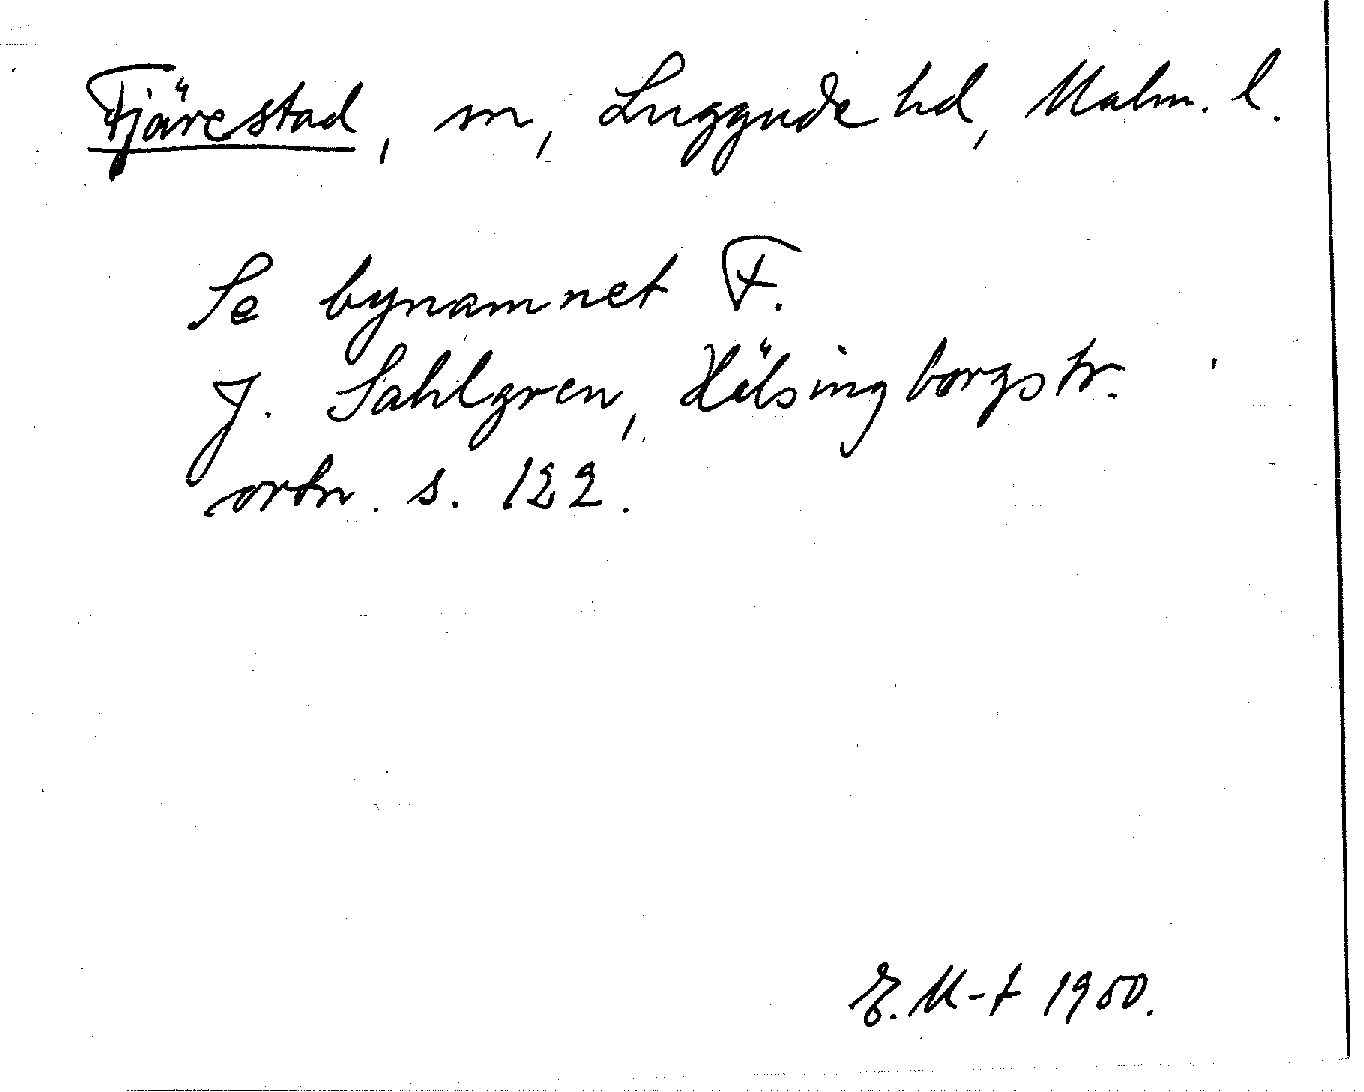 Fjärestad, sn, Luggude hd, Malm. l.
Se bynamnet F.
J. Sahlgren, Hälsingborgstr.
ortn. s. 122.
E. M-t 1950.